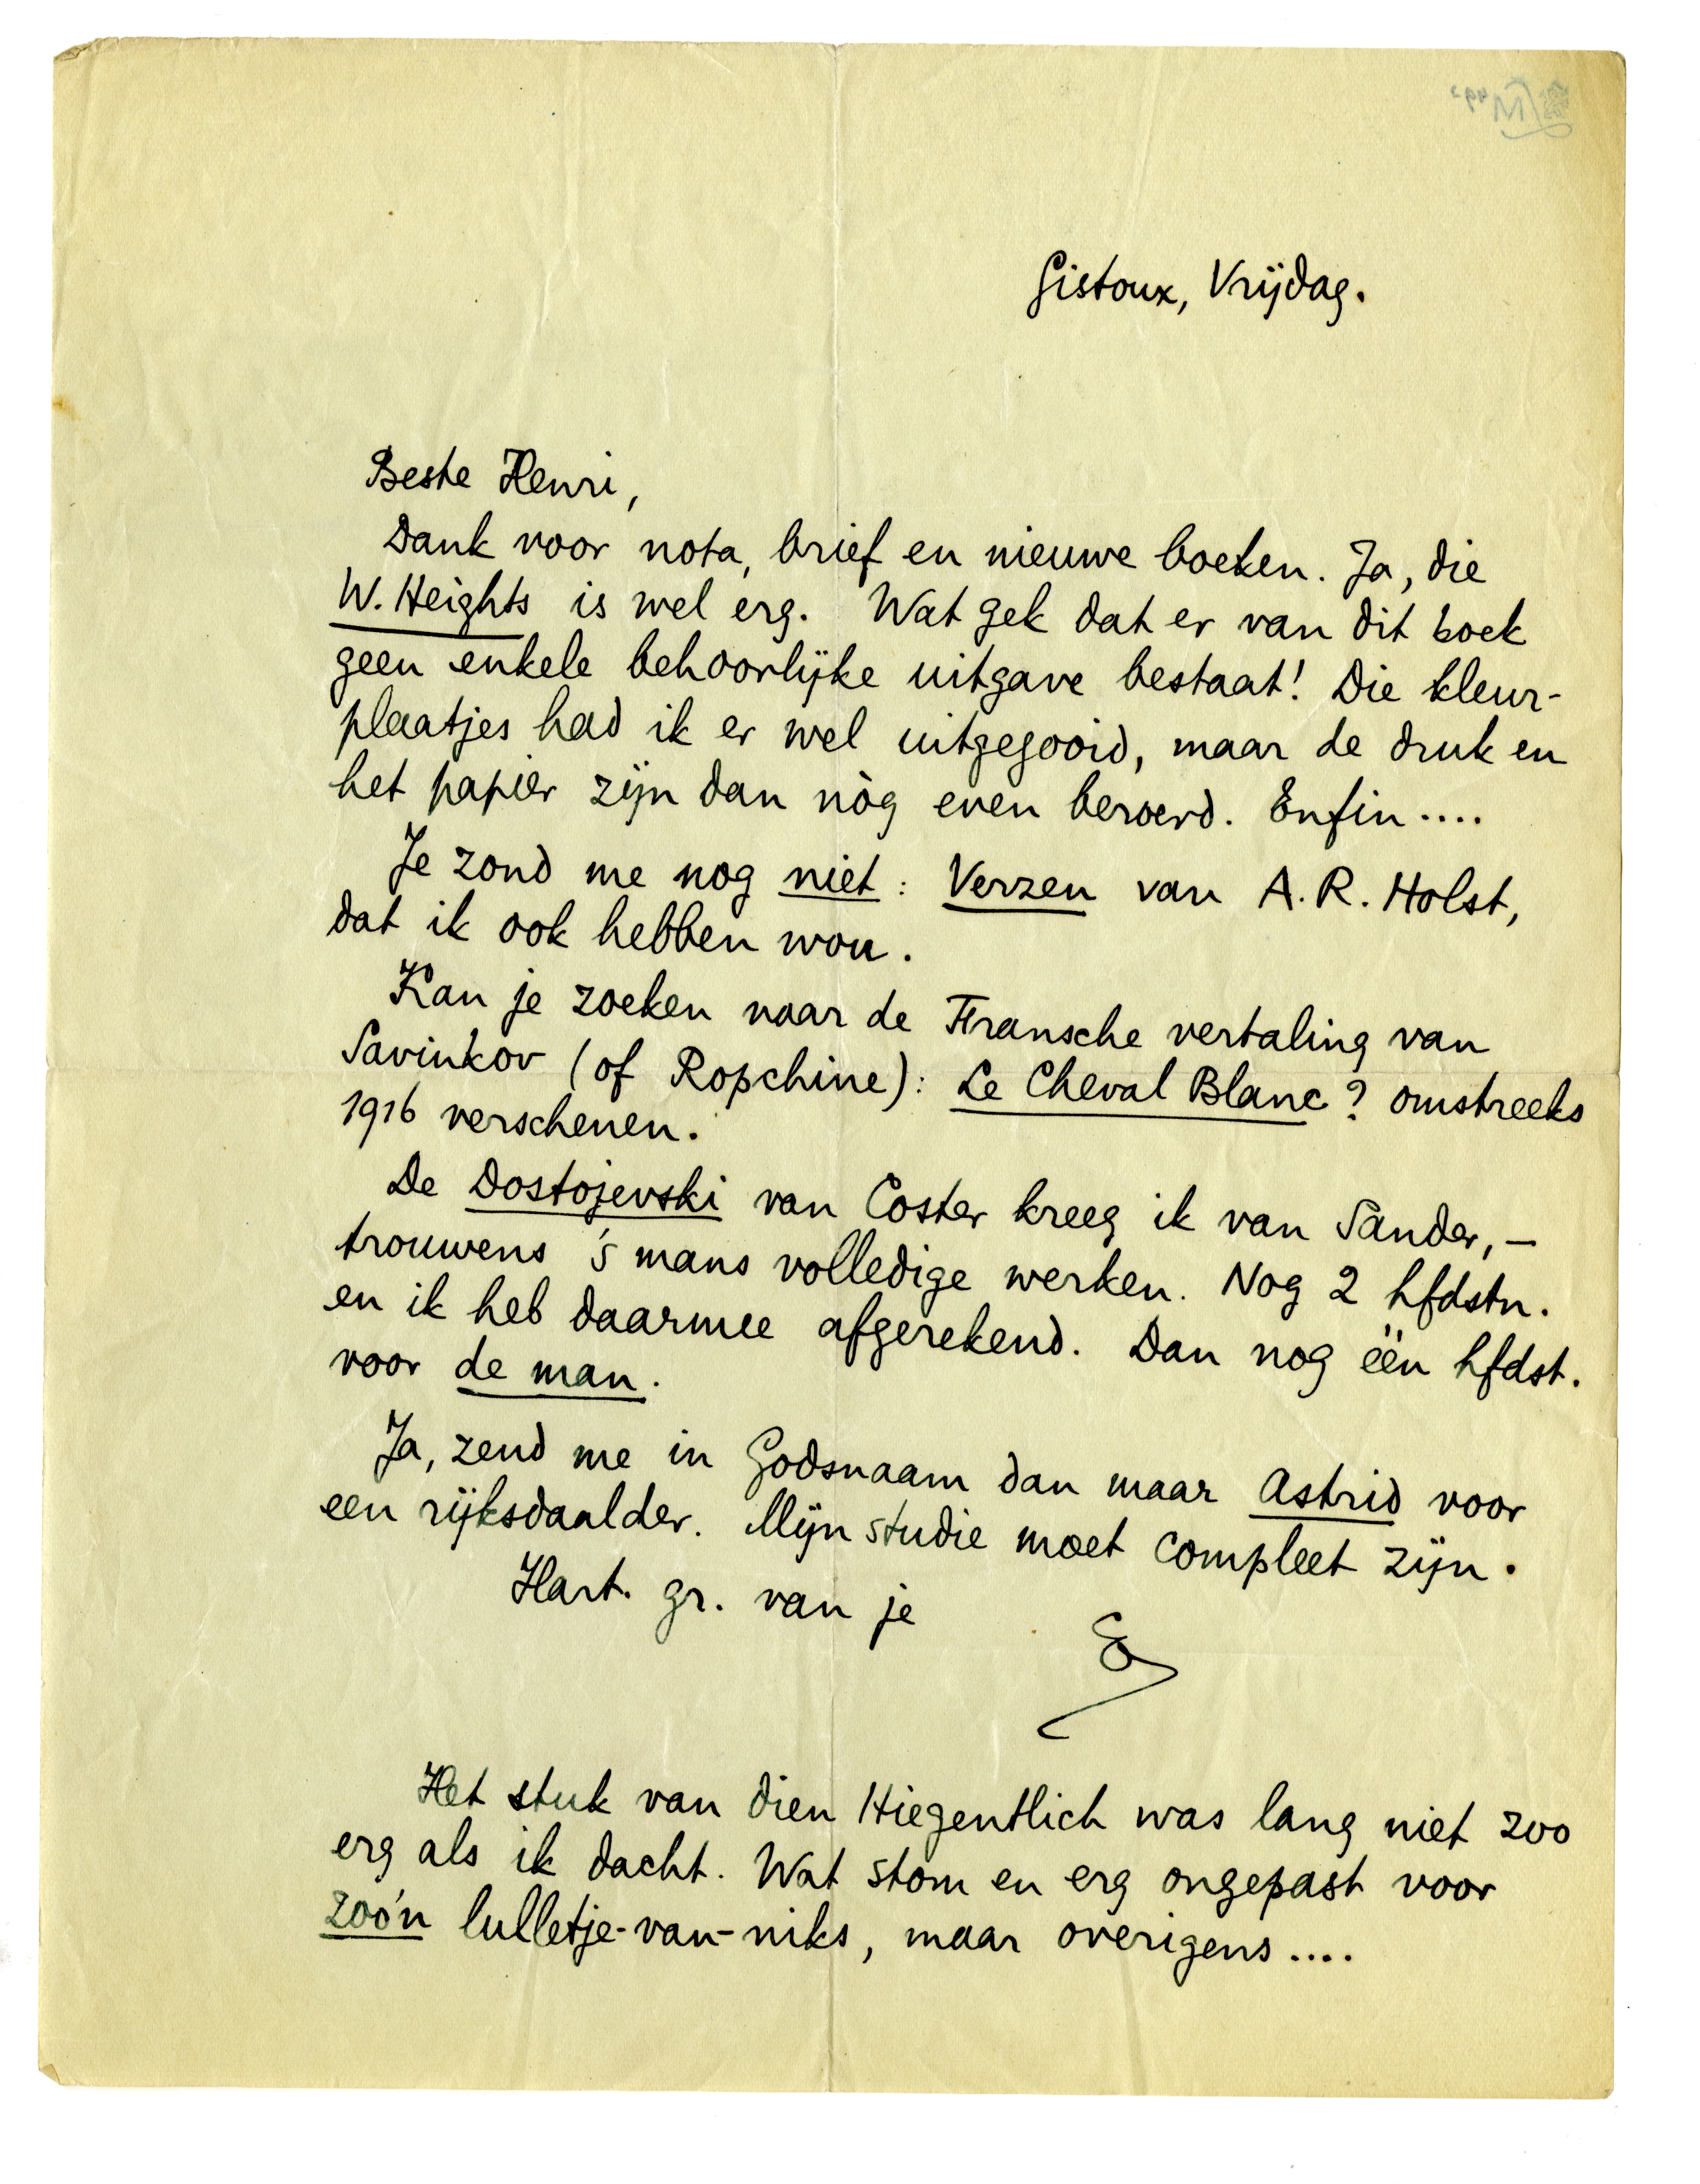 Gistoux, Vrijdag.
Beste Henri,
Dank voor nota, brief en nieuwe boeken. Ja, die
W. Heights is wel erg. Wat gek dat er van dit boek
geen enkele behoorlijke uitgave bestaat! Die kleur-
plaatjes had ik er wel uitgegooid, maar de druk en
het papier zijn dan nòg even beroerd. Enfin....
Je zond me nog niet: Verzen van A. R. Holst,
dat ik ook hebben wou.
Kan je zoeken naar de Fransche vertaling van
Savinkov (of Ropchine): Le Cheval Blanc? omstreeks
1916 verschenen.
De Dostojevski van Coster kreeg ik van Sander, —
trouwens 's mans volledige werken. Nog 2 hfdstn.
en ik heb daarmee afgerekend. Dan nog één hfdst.
voor de man.
Ja, zend me in Godsnaam dan maar Astrid voor
een rijksdaalder. Mijn studie moet compleet zijn.
Hart. gr. van je
E
Het stuk van dien Hiegentlich was lang niet zoo
erg als ik dacht. Wat stom en erg ongepast voor
zoo'n lulletje-van-niks, maar overigens....